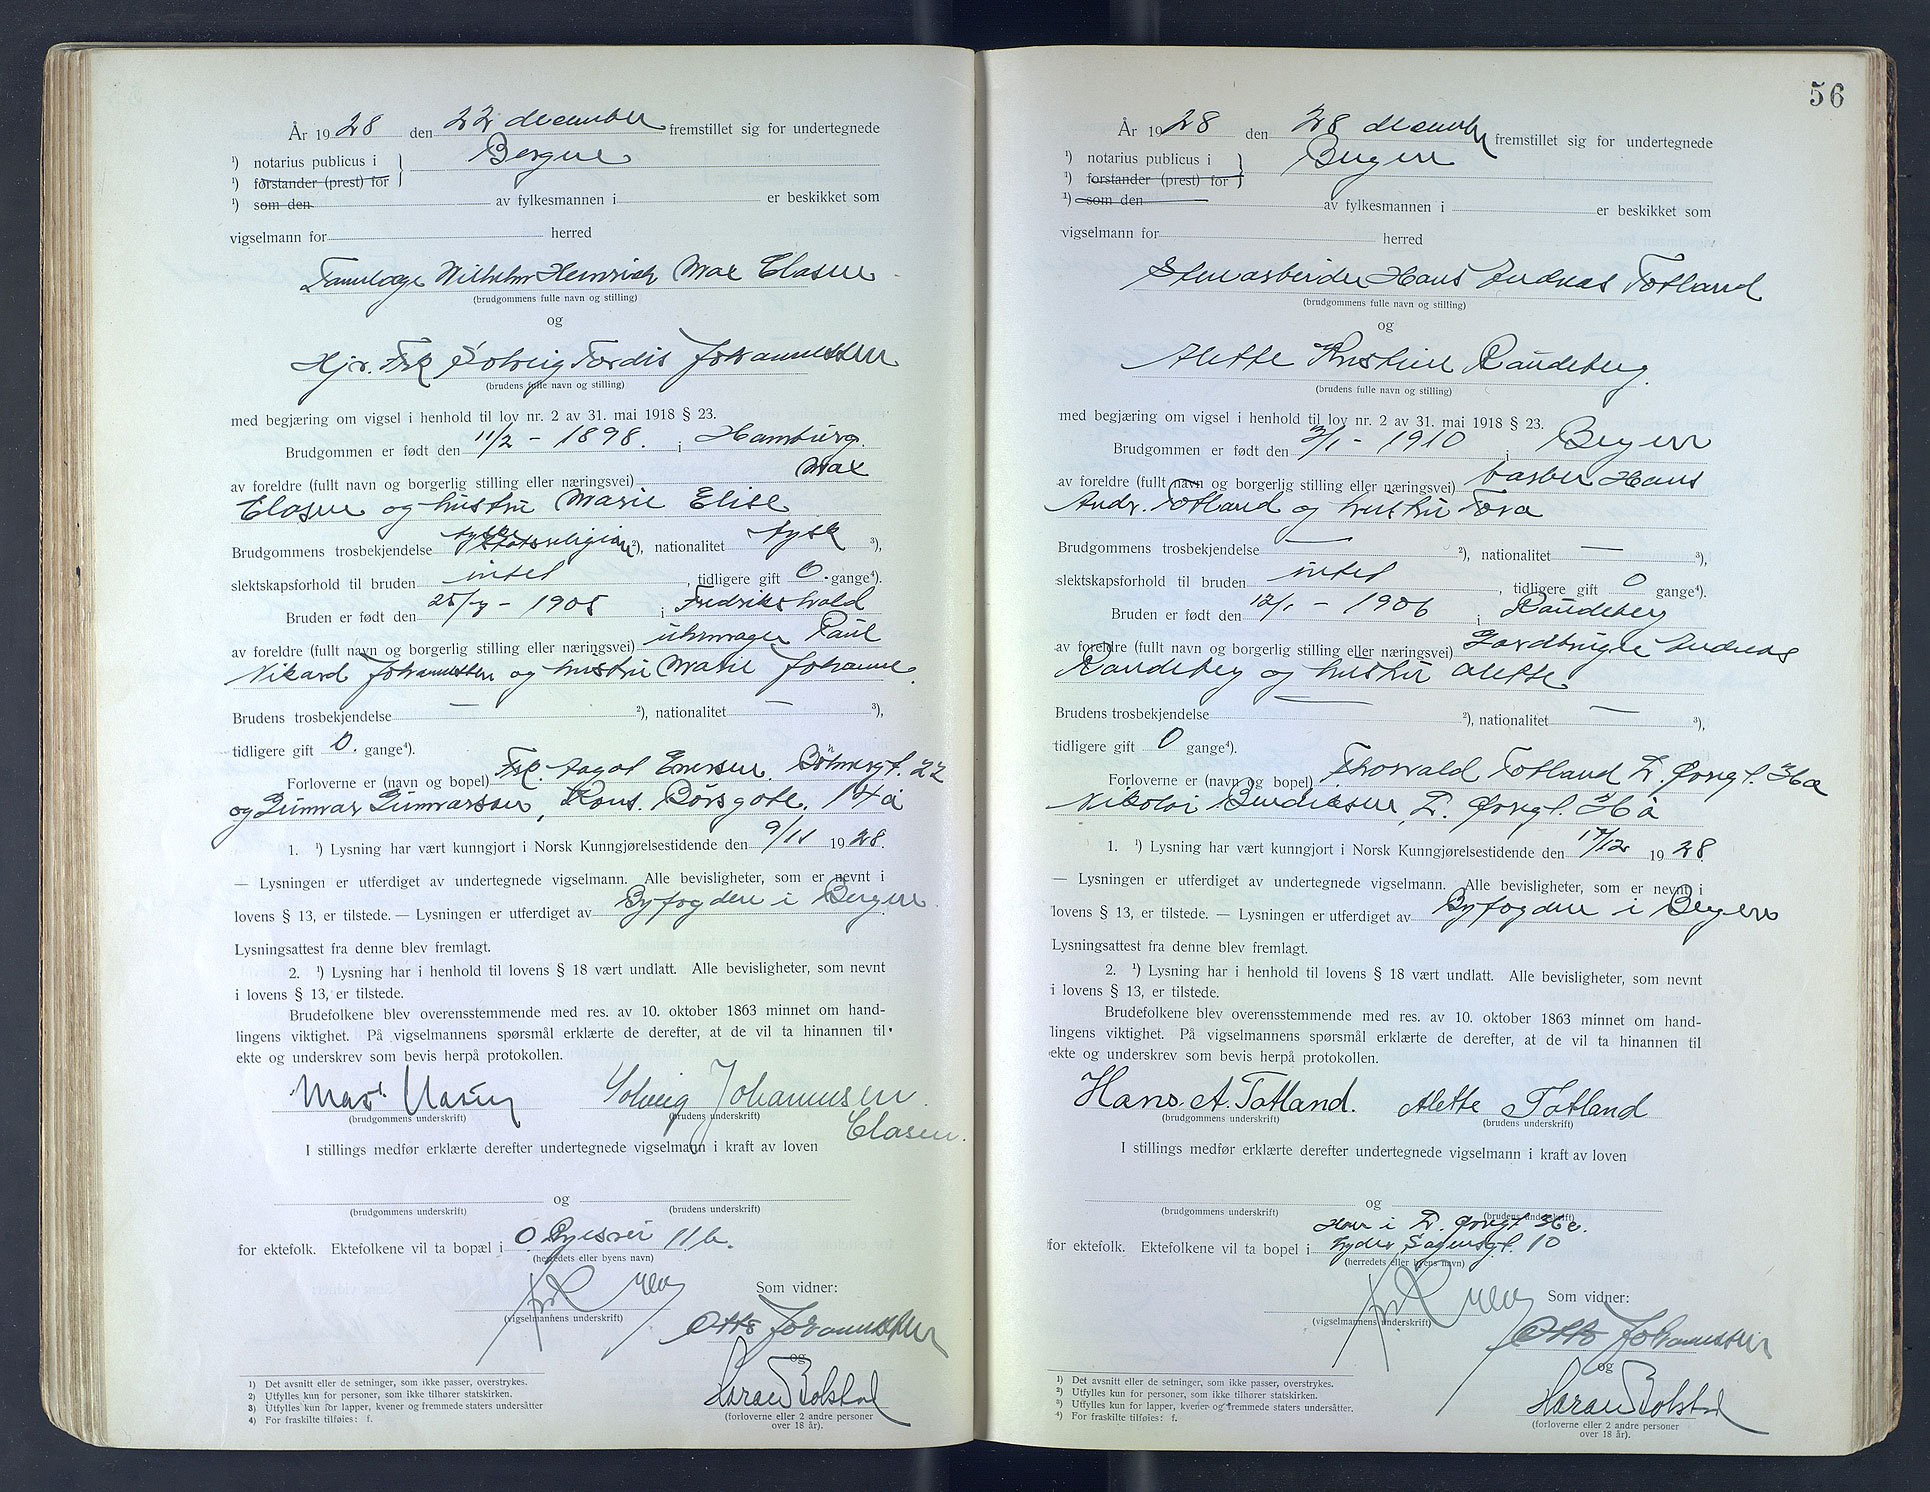 År 1928 den 22 december fremstillet sig for undertegnede
¹) notarius publicus i } Bergen
¹) forstander (prest) for
¹) som den av fylkesmannen i er beskikket som
vigselmann for herred
Wilhelm Heinrich Max Clasen
(brudgommens fulle navn og stilling)
og
Hjv. Frk Solveig Tordis Johannessen
(brudens fulle navn og stilling)
med begjæring om vigsel i henhold til lov nr. 2 av 31. mai 1918 § 23.
Brudgommen er født den 11/2 - 1898. i Hamburg.
av foreldre (fullt navn og borgerlig stilling eller næringsvei) Max
Clasen og hustru Marie Elise
Brudgommens trosbekjendelse tyske statsreligion ²), nationalitet tysk ³),
slektskapsforhold til bruden intet, tidligere gift 0. gange⁴).
Bruden er født den 25/7 - 1905 i Fredrikshald
av foreldre (fullt navn og borgerlig stilling eller næringsvei) urmager Paul
Nikard Johannessen og hustru Marie Johanne.
Brudens trosbekjendelse — ²), nationalitet — ³),
tidligere gift 0. gange⁴).
Forloverne er (navn og bopel) Frk. Aagot Iversen. 22
og Gunnar Gunnarsson, Kons. Børsgate. 14 a
1. ¹) Lysning har vært kunngjort i Norsk Kunngjørelsestidende den 9/11 1928.
— Lysningen er utferdiget av undertegnede vigselmann. Alle bevisligheter, som er nevnt i
lovens § 13, er tilstede. — Lysningen er utferdiget av Byfogden i Bergen.
Lysningsattest fra denne blev fremlagt.
2. ¹) Lysning har i henhold til lovens § 18 vært undlatt. Alle bevisligheter, som nevnt
i lovens § 13, er tilstede.
Brudefolkene blev overensstemmende med res. av 10. oktober 1863 minnet om hand-
lingens viktighet. På vigselmannens spørsmål erklærte de derefter, at de vil ta hinannen til
ekte og underskrev som bevis herpå protokollen.
Max Clasen Solveig Johannessen
(brudgommens underskrift) (brudens underskrift)
Clasen.
I stillings medfør erklærte derefter undertegnede vigselmann i kraft av loven
og
(brudgommens underskrift) (brudens underskrift)
for ektefolk. Ektefolkene vil ta bopæl i 11 b.
(herredets eller byens navn)
Som vidner:
(vigselmannens underskrift)
Otto Johannessen
og
Haran Bolstad
(forloverne eller 2 andre personer
over 18 år).
1) Det avsnitt eller de setninger, som ikke passer, overstrykes.
2) Utfylles kun for personer, som ikke tilhører statskirken.
3) Utfylles kun for lapper, kvener og fremmede staters undersåtter
4) For fraskilte tilføies: f.
56
År 1928 den 28 december fremstillet sig for undertegnede
¹) notarius publicus i } Bergen
¹) forstander (prest) for
¹) som den av fylkesmannen i er beskikket som
vigselmann for herred
Stenarbeider Hans Andreas Totland
(brudgommens fulle navn og stilling)
og
Alette Kristine Raudeberg.
(brudens fulle navn og stilling)
med begjæring om vigsel i henhold til lov nr. 2 av 31. mai 1918 § 23.
Brudgommen er født den 3/1 - 1910 i Bergen
av foreldre (fullt navn og borgerlig stilling eller næringsvei) barber Hans
Andr. Totland og hustru Tora
Brudgommens trosbekjendelse — ²), nationalitet — ³),
slektskapsforhold til bruden intet, tidligere gift 0 gange⁴).
Bruden er født den 12/1 - 1906 i Raudeberg
av foreldre (fullt navn og borgerlig stilling eller næringsvei) Gardbruger Andreas
Raudeberg og hustru Alette
Brudens trosbekjendelse — ²), nationalitet — ³),
tidligere gift 0 gange⁴).
Forloverne er (navn og bopel) Thorvald Totland
Nikolai Bendiksen,
1. ¹) Lysning har vært kunngjort i Norsk Kunngjørelsestidende den 17/12 1928.
— Lysningen er utferdiget av undertegnede vigselmann. Alle bevisligheter, som er nevnt i
lovens § 13, er tilstede. — Lysningen er utferdiget av Byfogden i Bergen
Lysningsattest fra denne blev fremlagt.
2. ¹) Lysning har i henhold til lovens § 18 vært undlatt. Alle bevisligheter, som nevnt
i lovens § 13, er tilstede.
Brudefolkene blev overensstemmende med res. av 10. oktober 1863 minnet om hand-
lingens viktighet. På vigselmannens spørsmål erklærte de derefter, at de vil ta hinannen til
ekte og underskrev som bevis herpå protokollen.
Hans. A. Totland. Alette Totland
(brudgommens underskrift) (brudens underskrift)
I stillings medfør erklærte derefter undertegnede vigselmann i kraft av loven
og
(brudgommens underskrift) (brudens underskrift)
for ektefolk. Ektefolkene vil ta bopel i Lyder Sagensgt. 10
(herredets eller byens navn)
Som vidner:
(vigselmannens underskrift)
Otto Johannessen
og
Haran Bolstad
(forloverne eller 2 andre personer
over 18 år).
¹) Det avsnitt eller de setninger, som ikke passer, overstrykes.
²) Utfylles kun for personer, som ikke tilhører statskirken.
³) Utfylles kun for lapper, kvener og fremmede staters undersåtter.
⁴) For fraskilte tilføies: f.